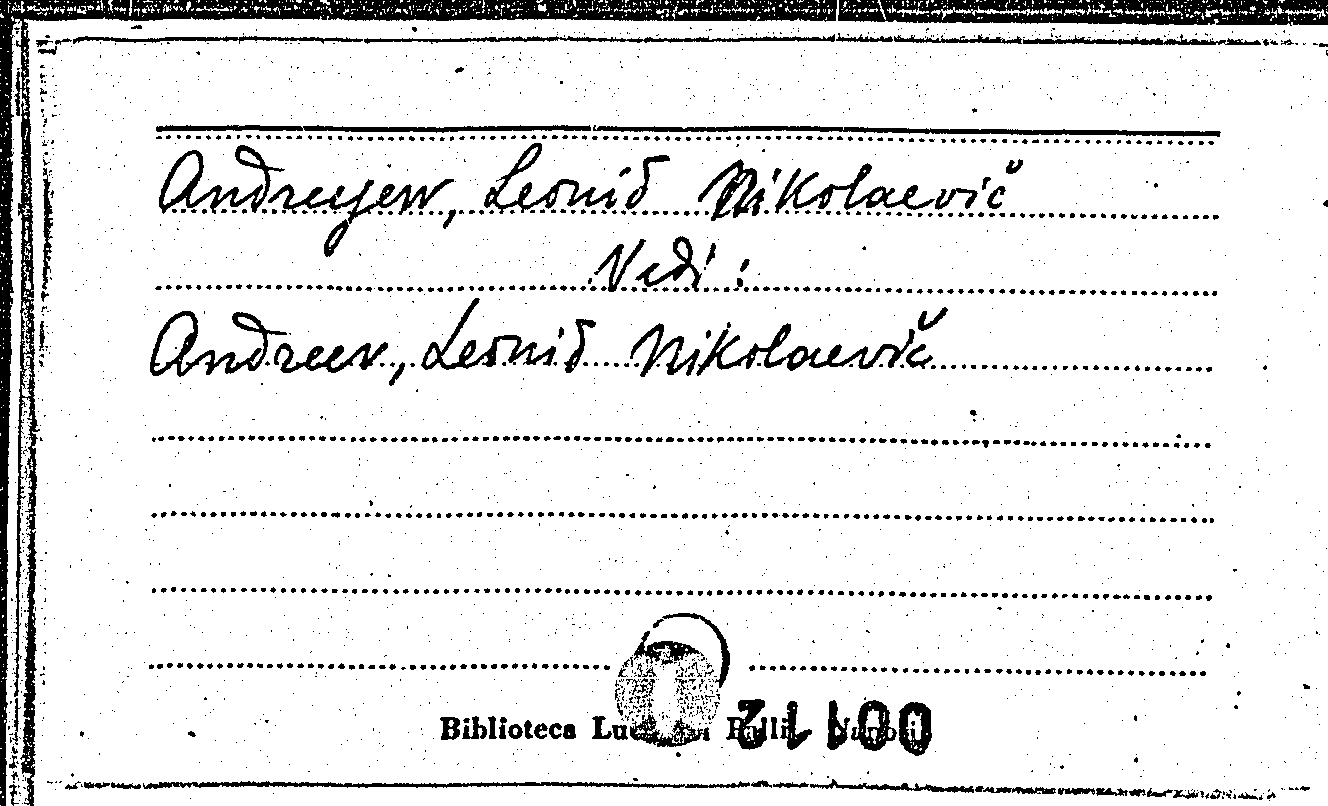 Andreejew, Leonid Nikolaevič
Vedi:
Andreev, Leonid Nikolaevič
Biblioteca